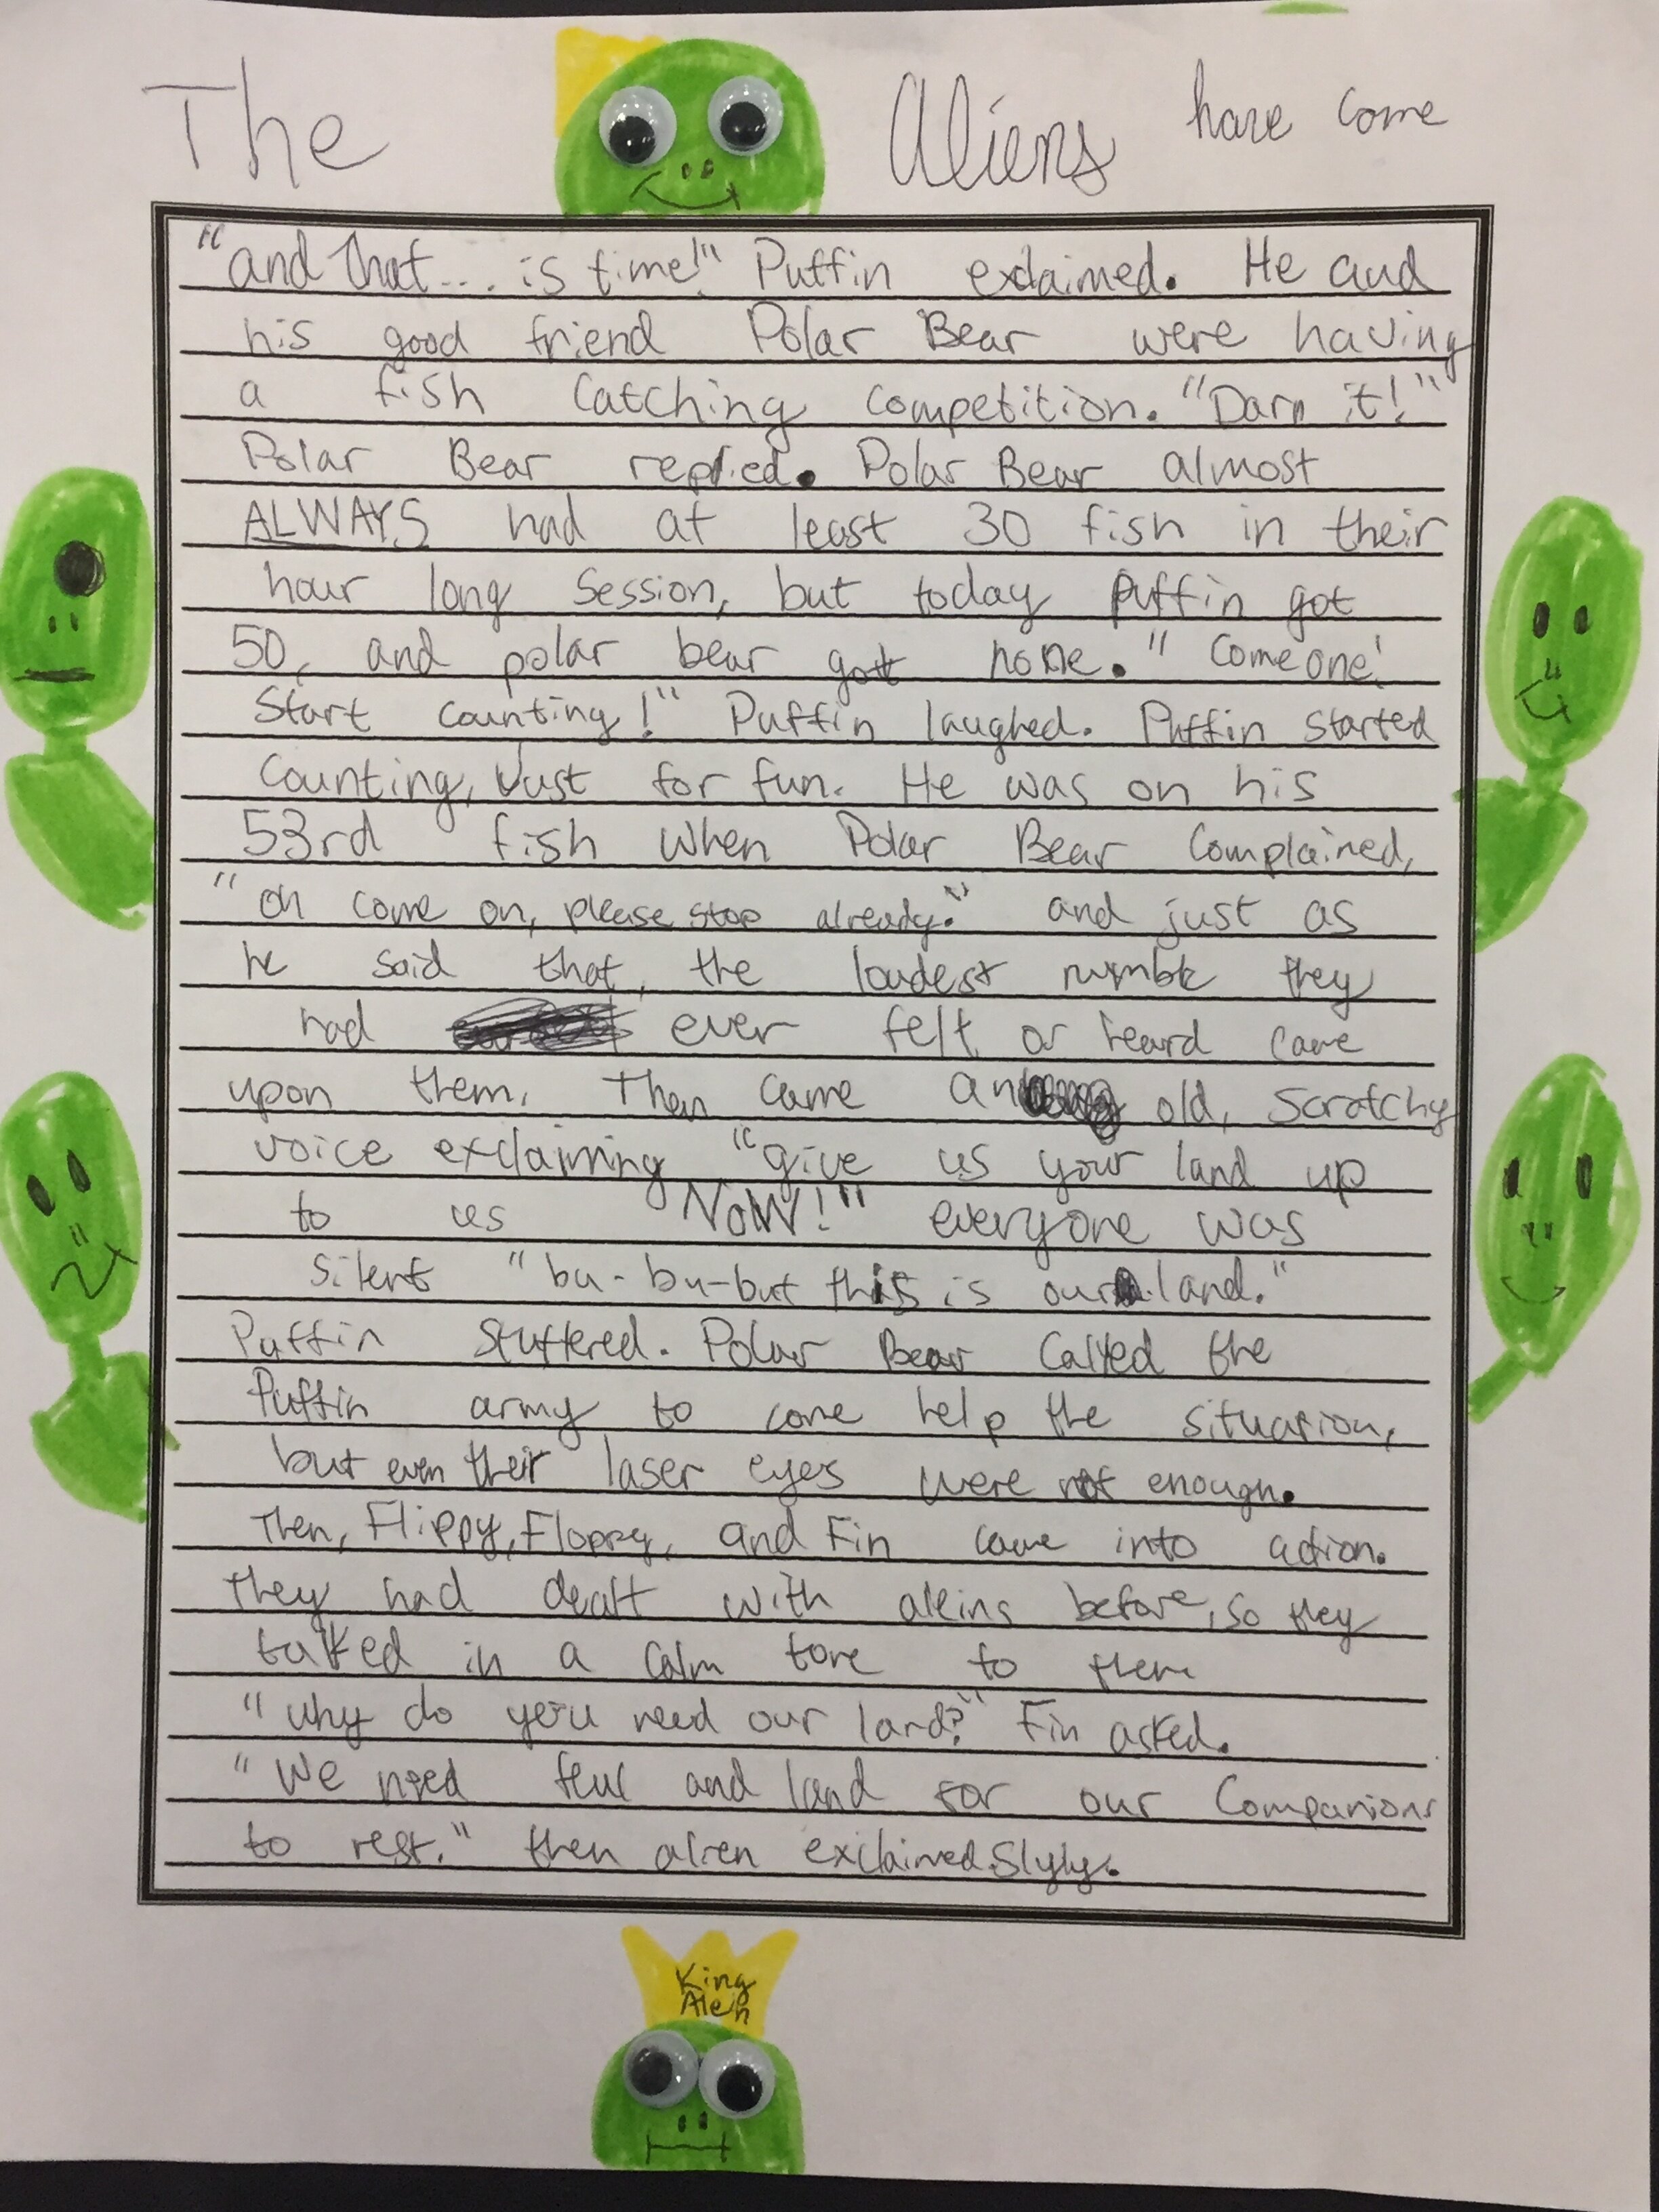 The Aliens have come
"and that... is time!" Puffin exclaimed. He and
his good friend Polar Bear were having
a fish catching competition. "Darn it!"
Polar Bear replied. Polar Bear almost
ALWAYS had at least 30 fish in their
hour long session, but today Puffin got
50, and polar bear got none. "Come one!
Start counting!" Puffin laughed. Puffin started
counting, Just for fun. He was on his
53rd fish when Polar Bear complained,
"oh come on, please stop already." and just as
he said that, the loudest rumble they
had ever felt or heard came
upon them. Then came an old, scratchy
voice exclaiming "give us your land up
to us NOW!" everyone was
silent "bu-bu-but this is our land."
Puffin stuttered. Polar Bear called the
Puffin army to come help the situation,
but even their laser eyes were not enough.
Then, Flippy, Floppy, and Fin came into action.
They had dealt with aleins before, so they
talked in a calm tone to them
"why do you need our land?" Fin asked.
"We need feul and land for our Companions
to rest." then alien exclaimed slyly.
King
Alein